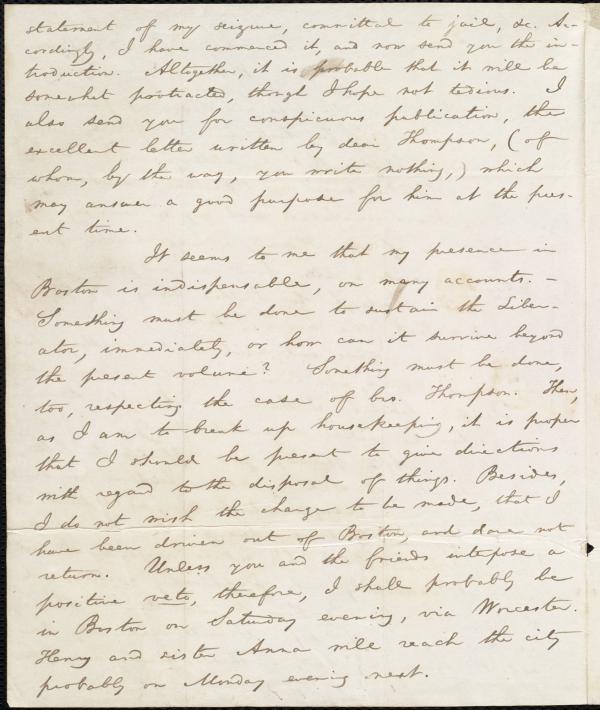 statement of my seizure, committal to jail, &c. Ac-
cordingly, I have commenced it, and now send you the in-
troduction. Altogether, it is probable that it will be
somewhat protracted, though I hope not tedious. I
also send you for conspicuous publication, the
excellent letter written by dear Thompson, (of
whom, by the way, you write nothing,) which
may answer a good purpose for him at the pres-
ent time.
It seems to me that my presence in
Boston is indispensable, on many accounts. -
Something must be done to sustain the Liber-
ator, immediately, or how can it survive beyond
the present volume? Something must be done,
too, respecting the case of bro. Thompson. Then,
as I am to break up housekeeping, it is proper
that I should be present to give directions
with regard to the disposal of things. Besides,
I do not wish the charge to be made, that I
have been driven out of Boston, and dare not
return. Unless you and the friends interpose a
positive veto, therefore, I shall probably be
in Boston on Saturday evening, via Worcester.
Henry and sister Anna will reach the city
probably on Monday evening next.